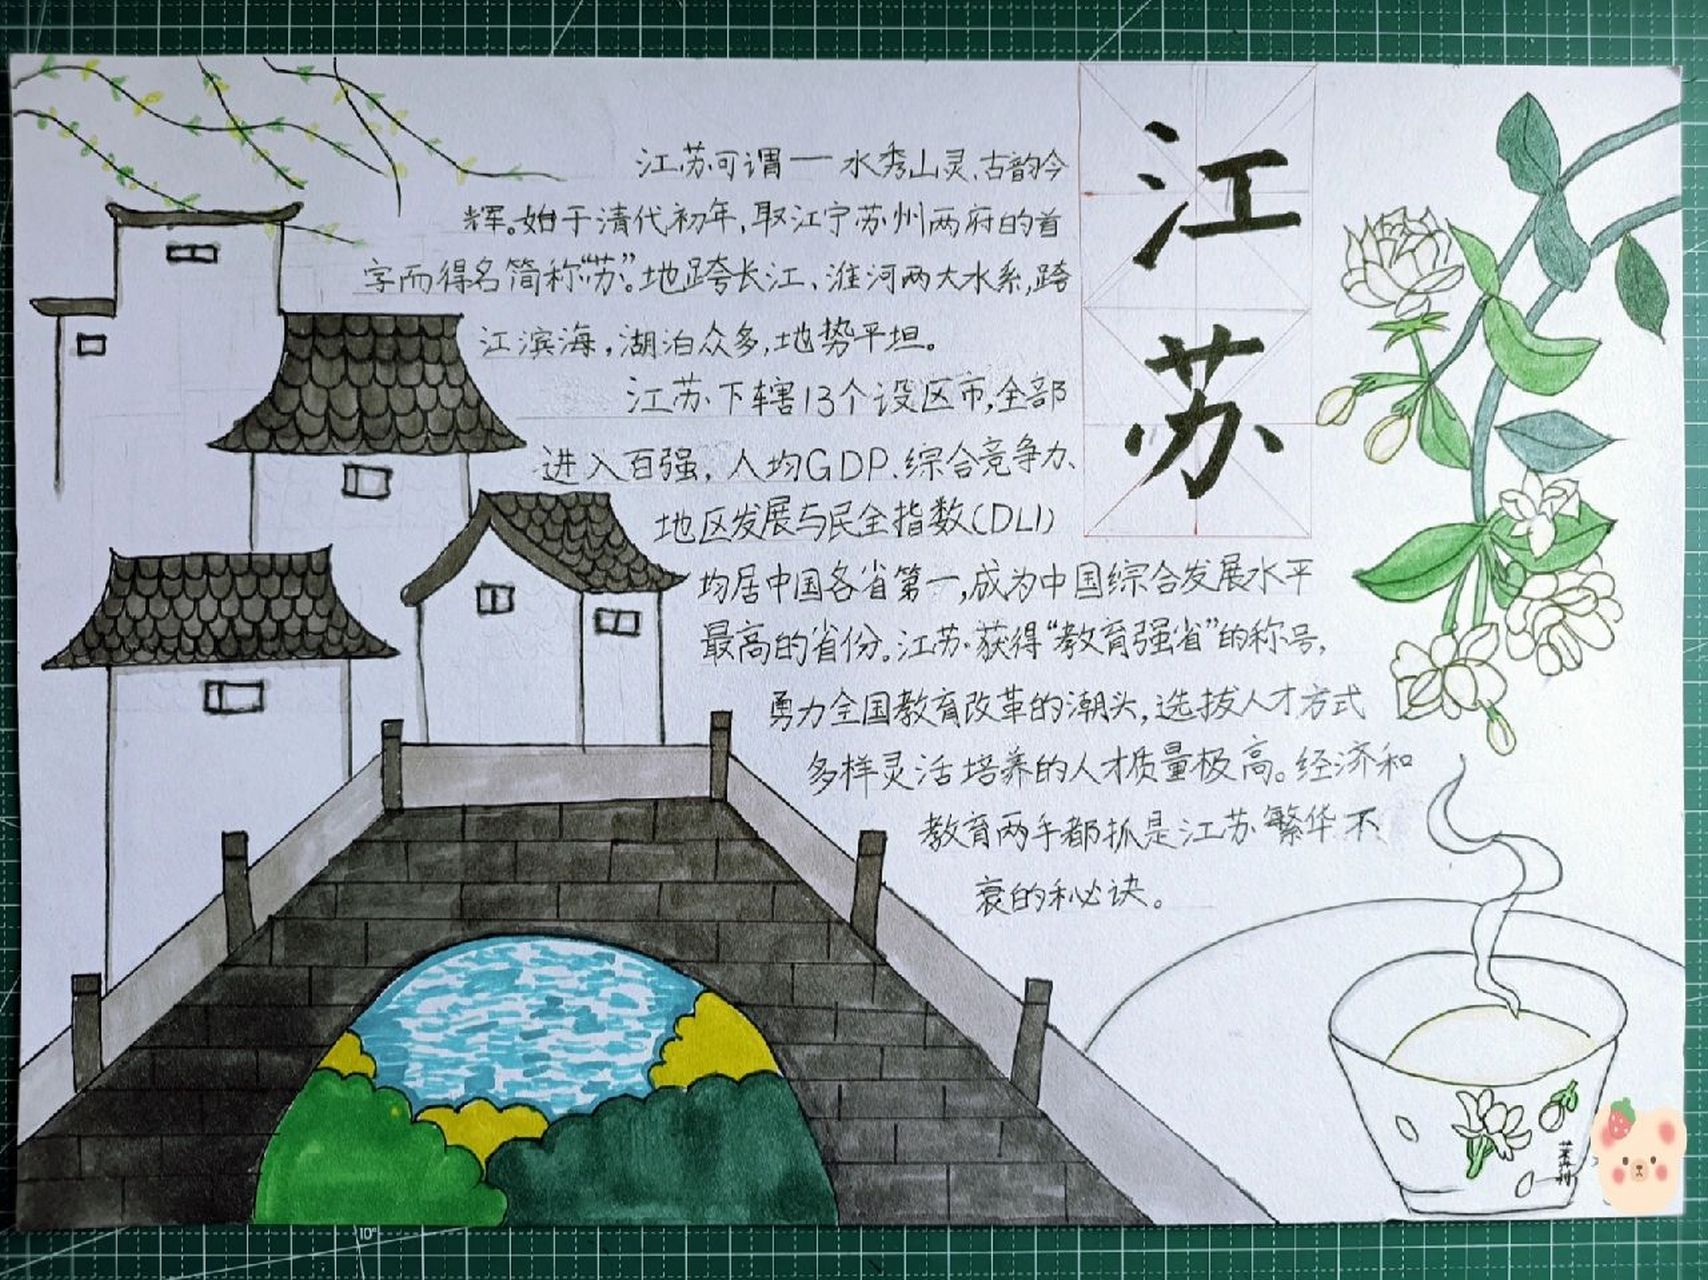 江苏
江苏可谓一水秀山灵、古韵今
辉。始于清代初年,取江宁苏州两府的首
字而得名简称"苏"。地跨长江、淮河两大水系,跨
江滨海,湖泊众多,地势平坦。
江苏下辖13个设区市,全部
进入百强,人均GDP、综合竞争力、
地区发展与民全指数(DLI)
均居中国各省第一,成为中国综合发展水平
最高的省份。江苏获得"教育强省"的称号,
勇力全国教育改革的潮头,选拔人才方式
多样灵活培养的人才质量极高。经济和
教育两手都抓是江苏繁华不
衰的秘诀。
10°